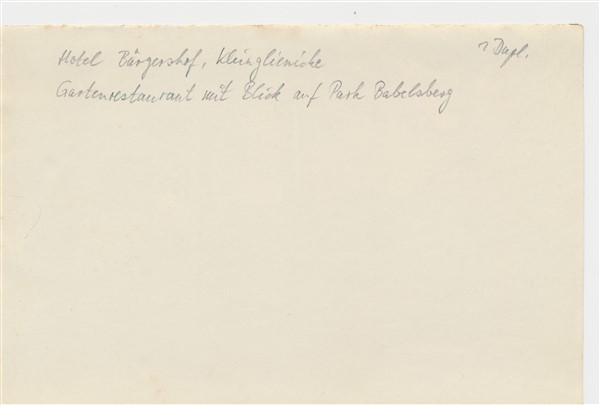 ? Dupl.
Hotel Bürgershof, Kleinglienicke
Gartenrestaurant mit Blick auf Park Babelsberg